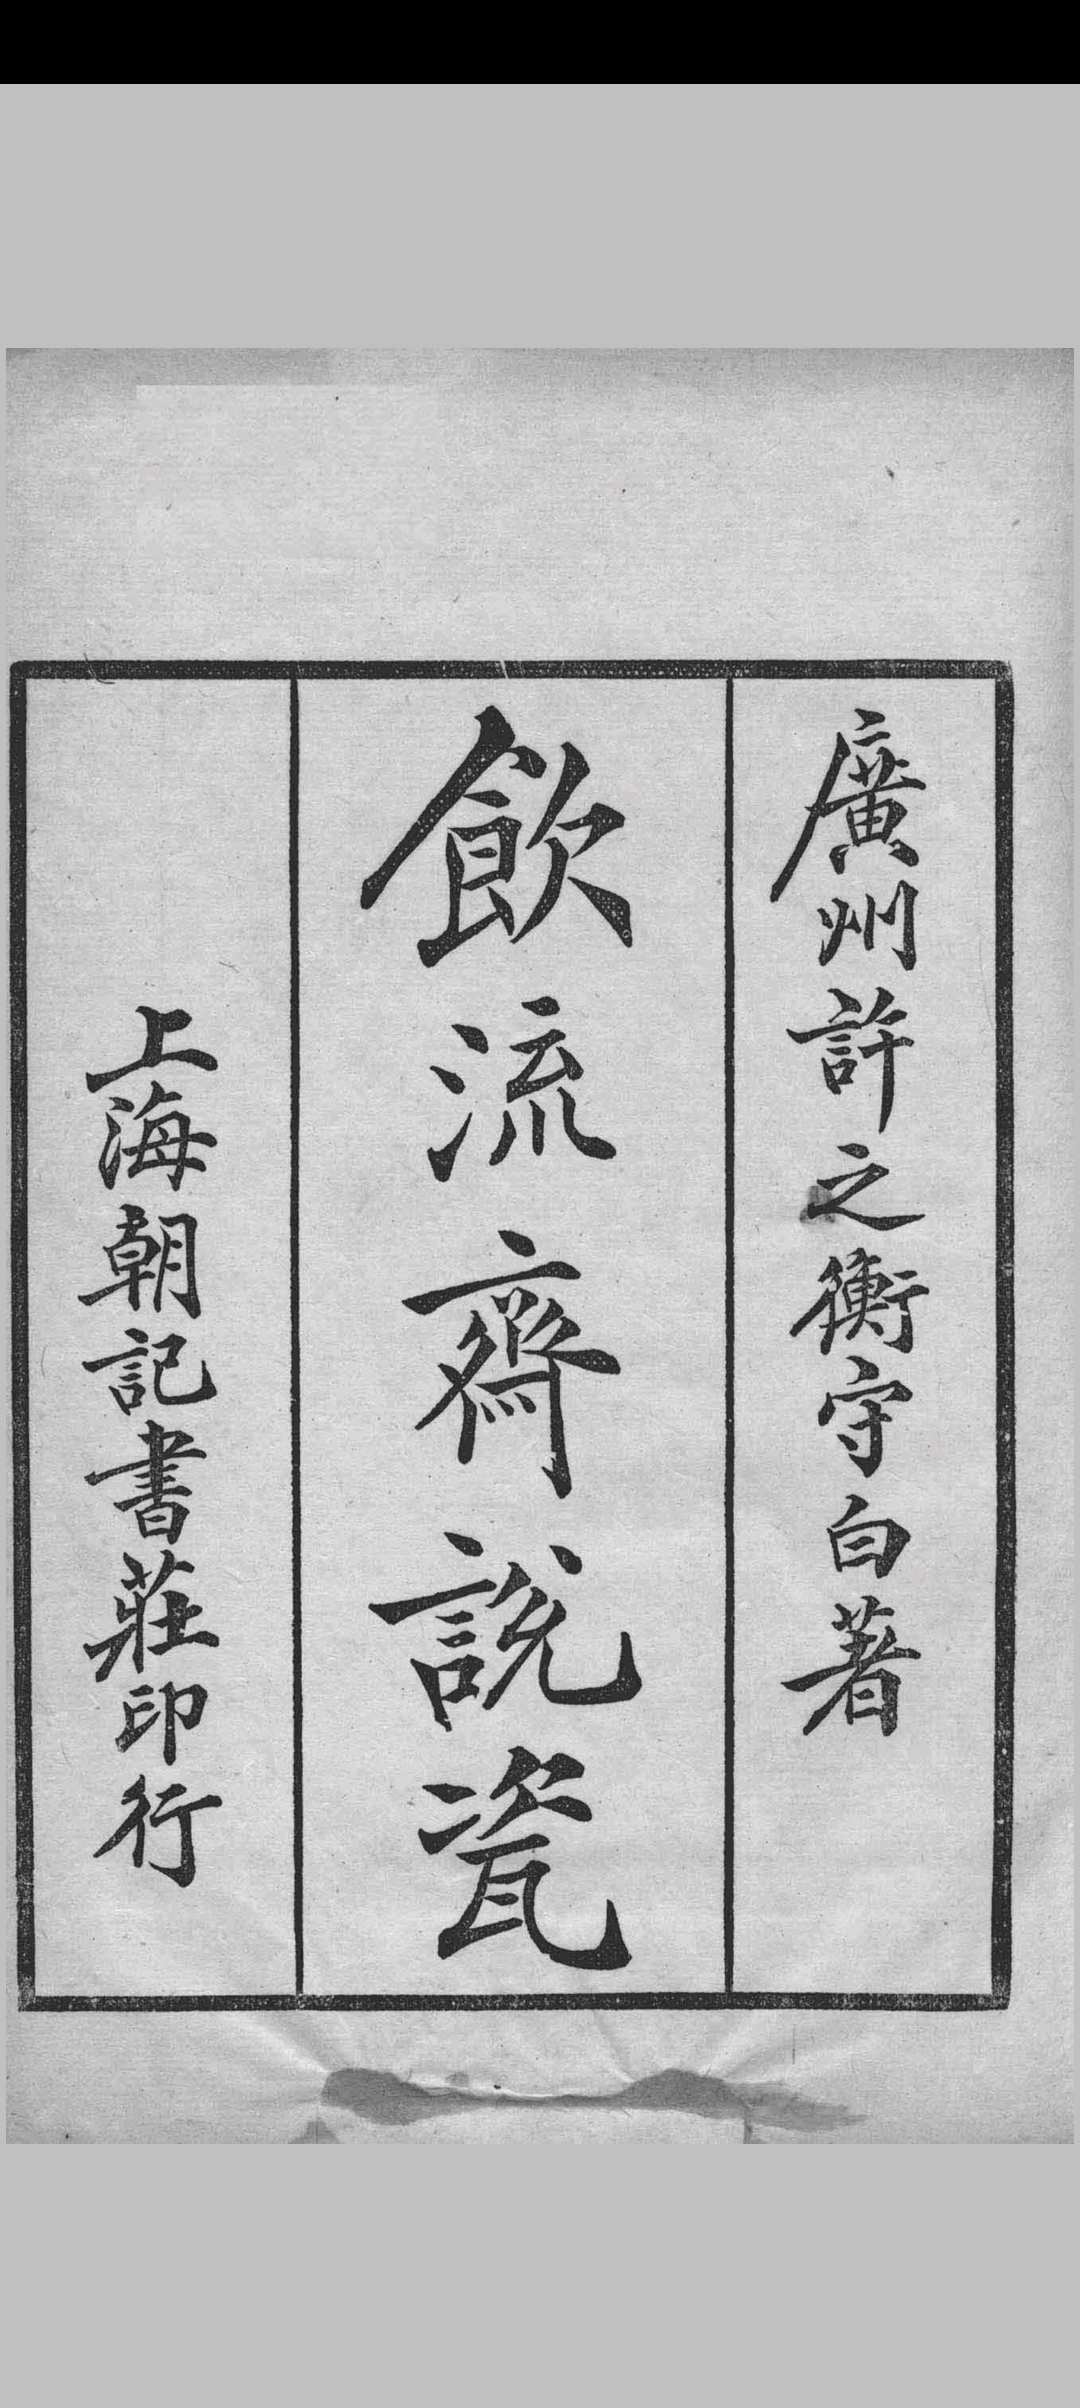 廣州許之衡守白著
飲流齋說瓷
上海朝記書莊印行